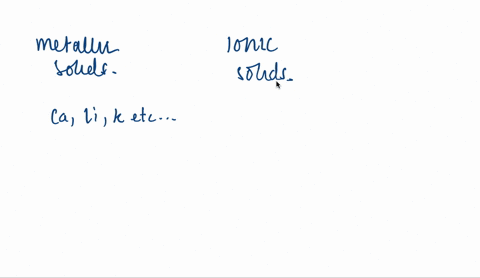 metallic
solids.
Ionic
solids.
Ca, Li, K etc...